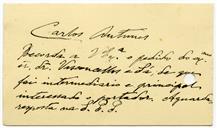 Carlos Antunes
Recorda a V. Ex.ª o pedido do
sr. dr. Vasconcellos e Sá, de que
foi intermediario e principal
interessado o portador. Aguarda
resposta na